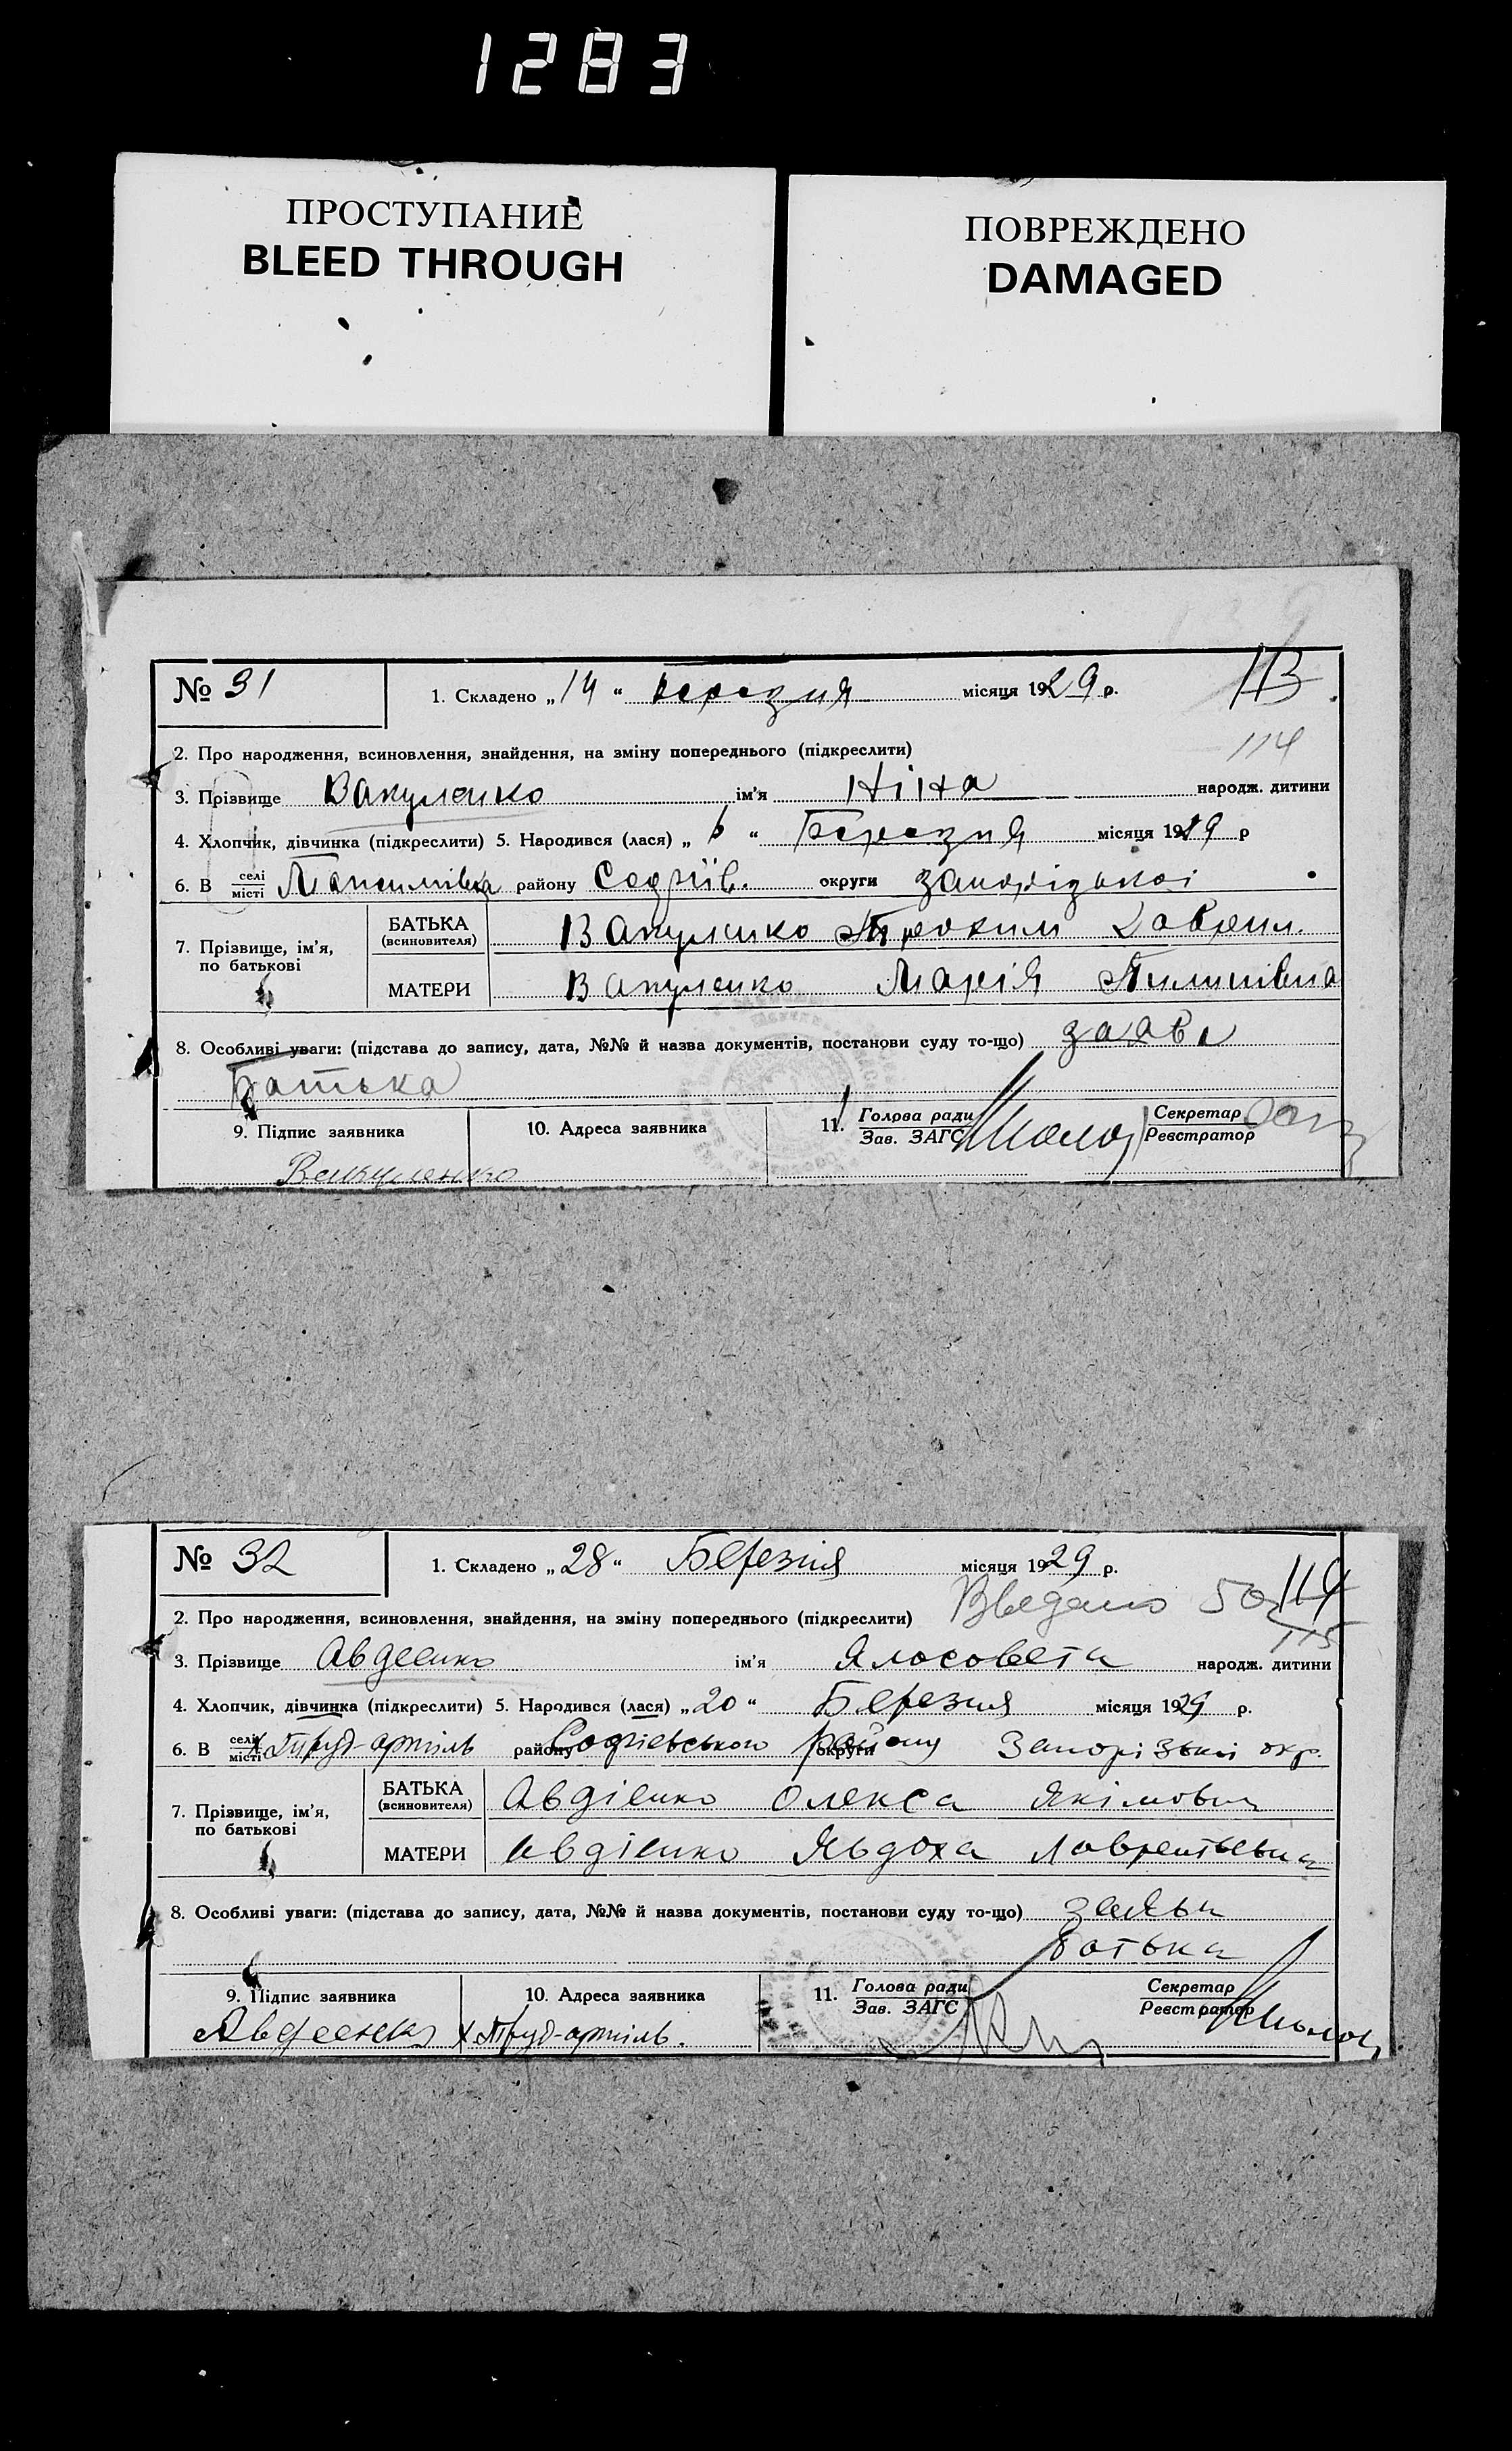 1283
ПРОСТУПАНИЕ
BLEED THROUGH
ПОВРЕЖДЕНО
DAMAGED
№ 31 1. Складено „14“ березня місяця 1929 р. 113
2. Про народження, всиновлення, знайдення, на зміну попереднього (підкреслити) 114
3. Прізвище Вакуленко ім'я Ніна народж. дитини
4. Хлопчик, дівчинка (підкреслити) 5. Народився (лася) „ “ Березня місяця 1929 р
6. В селі місті Максимівка району Софіїв. округи запорізької
7. Прізвище, ім'я, по батькові
БАТЬКА (всиновителя) Вакуленко Трохим Гаврил.
МАТЕРИ Вакуленко Марія Пилипівна
8. Особливі уваги: (підстава до запису, дата, №№ й назва документів, постанови суду то-що) заява
Батька
9. Підпис заявника 10. Адреса заявника 11. Голова ради Зав. ЗАГС Секретар Реєстратор
Вакуленко
№ 32 1. Складено „28“ Березня місяця 1929 р. 114
Введено 50
2. Про народження, всиновлення, знайдення, на зміну попереднього (підкреслити) 115
3. Прізвище Авдеенко ім'я Ялосовета народж. дитини
4. Хлопчик, дівчинка (підкреслити) 5. Народився (лася) „20“ Березня місяця 1929 р.
6. В селі місті х Труд-артіль району Софіевського округи району Запорізької окр.
7. Прізвище, ім'я, по батькові
БАТЬКА (всиновителя) Авдіенко Олекса Якімович
МАТЕРИ Авдіенко Явдоха Лаврентьевна
8. Особливі уваги: (підстава до запису, дата, №№ й назва документів, постанови суду то-що) заява
батька
9. Підпис заявника 10. Адреса заявника 11. Голова ради Зав. ЗАГС Секретар Реєстратор
Авдеенко х Труд-артіль.